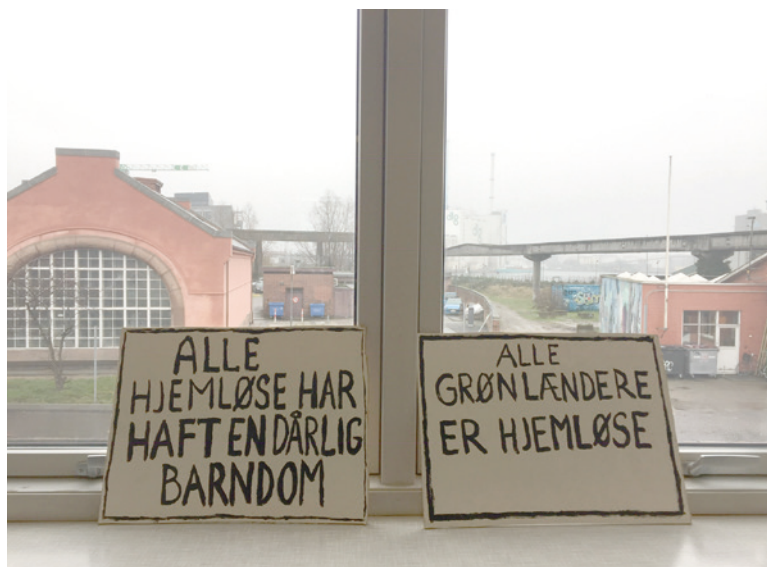 ALLE
HJEMLØSE HAR
HAFT EN DÅRLIG
BARNDOM
ALLE
GRØNLÆNDERE
ER HJEMLØSE